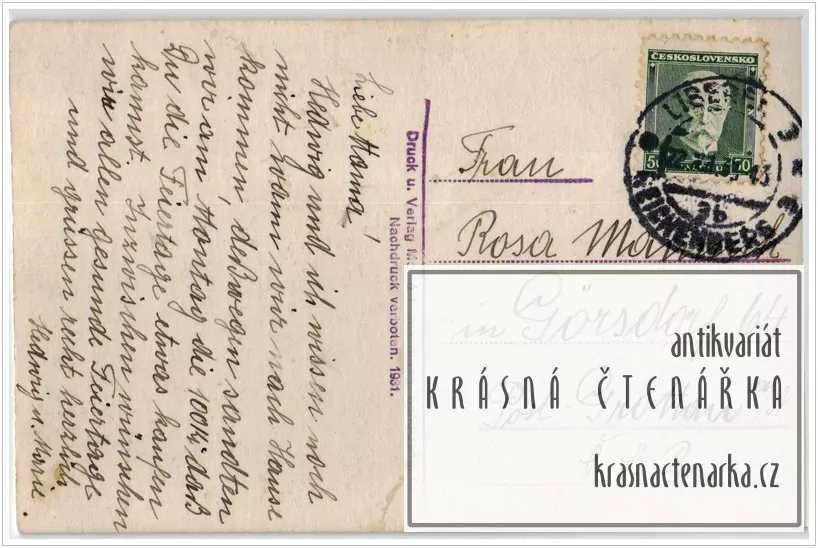 Liebe Mama!
Hedwig und ich wissen noch
nicht wann wir nach Hause
kommen, deßwegen sandten
wir am Montag die 100 Kč daß
Du die Feiertage etwas kaufen
kannst. Inzwischen wünschen
wir allen gesunde Feiertage
und grüssen recht herzlich
Hedwig u. Marie.
Druck u. Verlag
Nachdruck verboten. 1931.
ČESKOSLOVENSKO
50 50
LIBEREC
2b
REICHENBERG
Frau
Rosa
in Görsdorf 64
Post
antikvariát
KRÁSNÁ ČTENÁŘKA
krasnactenarka.cz